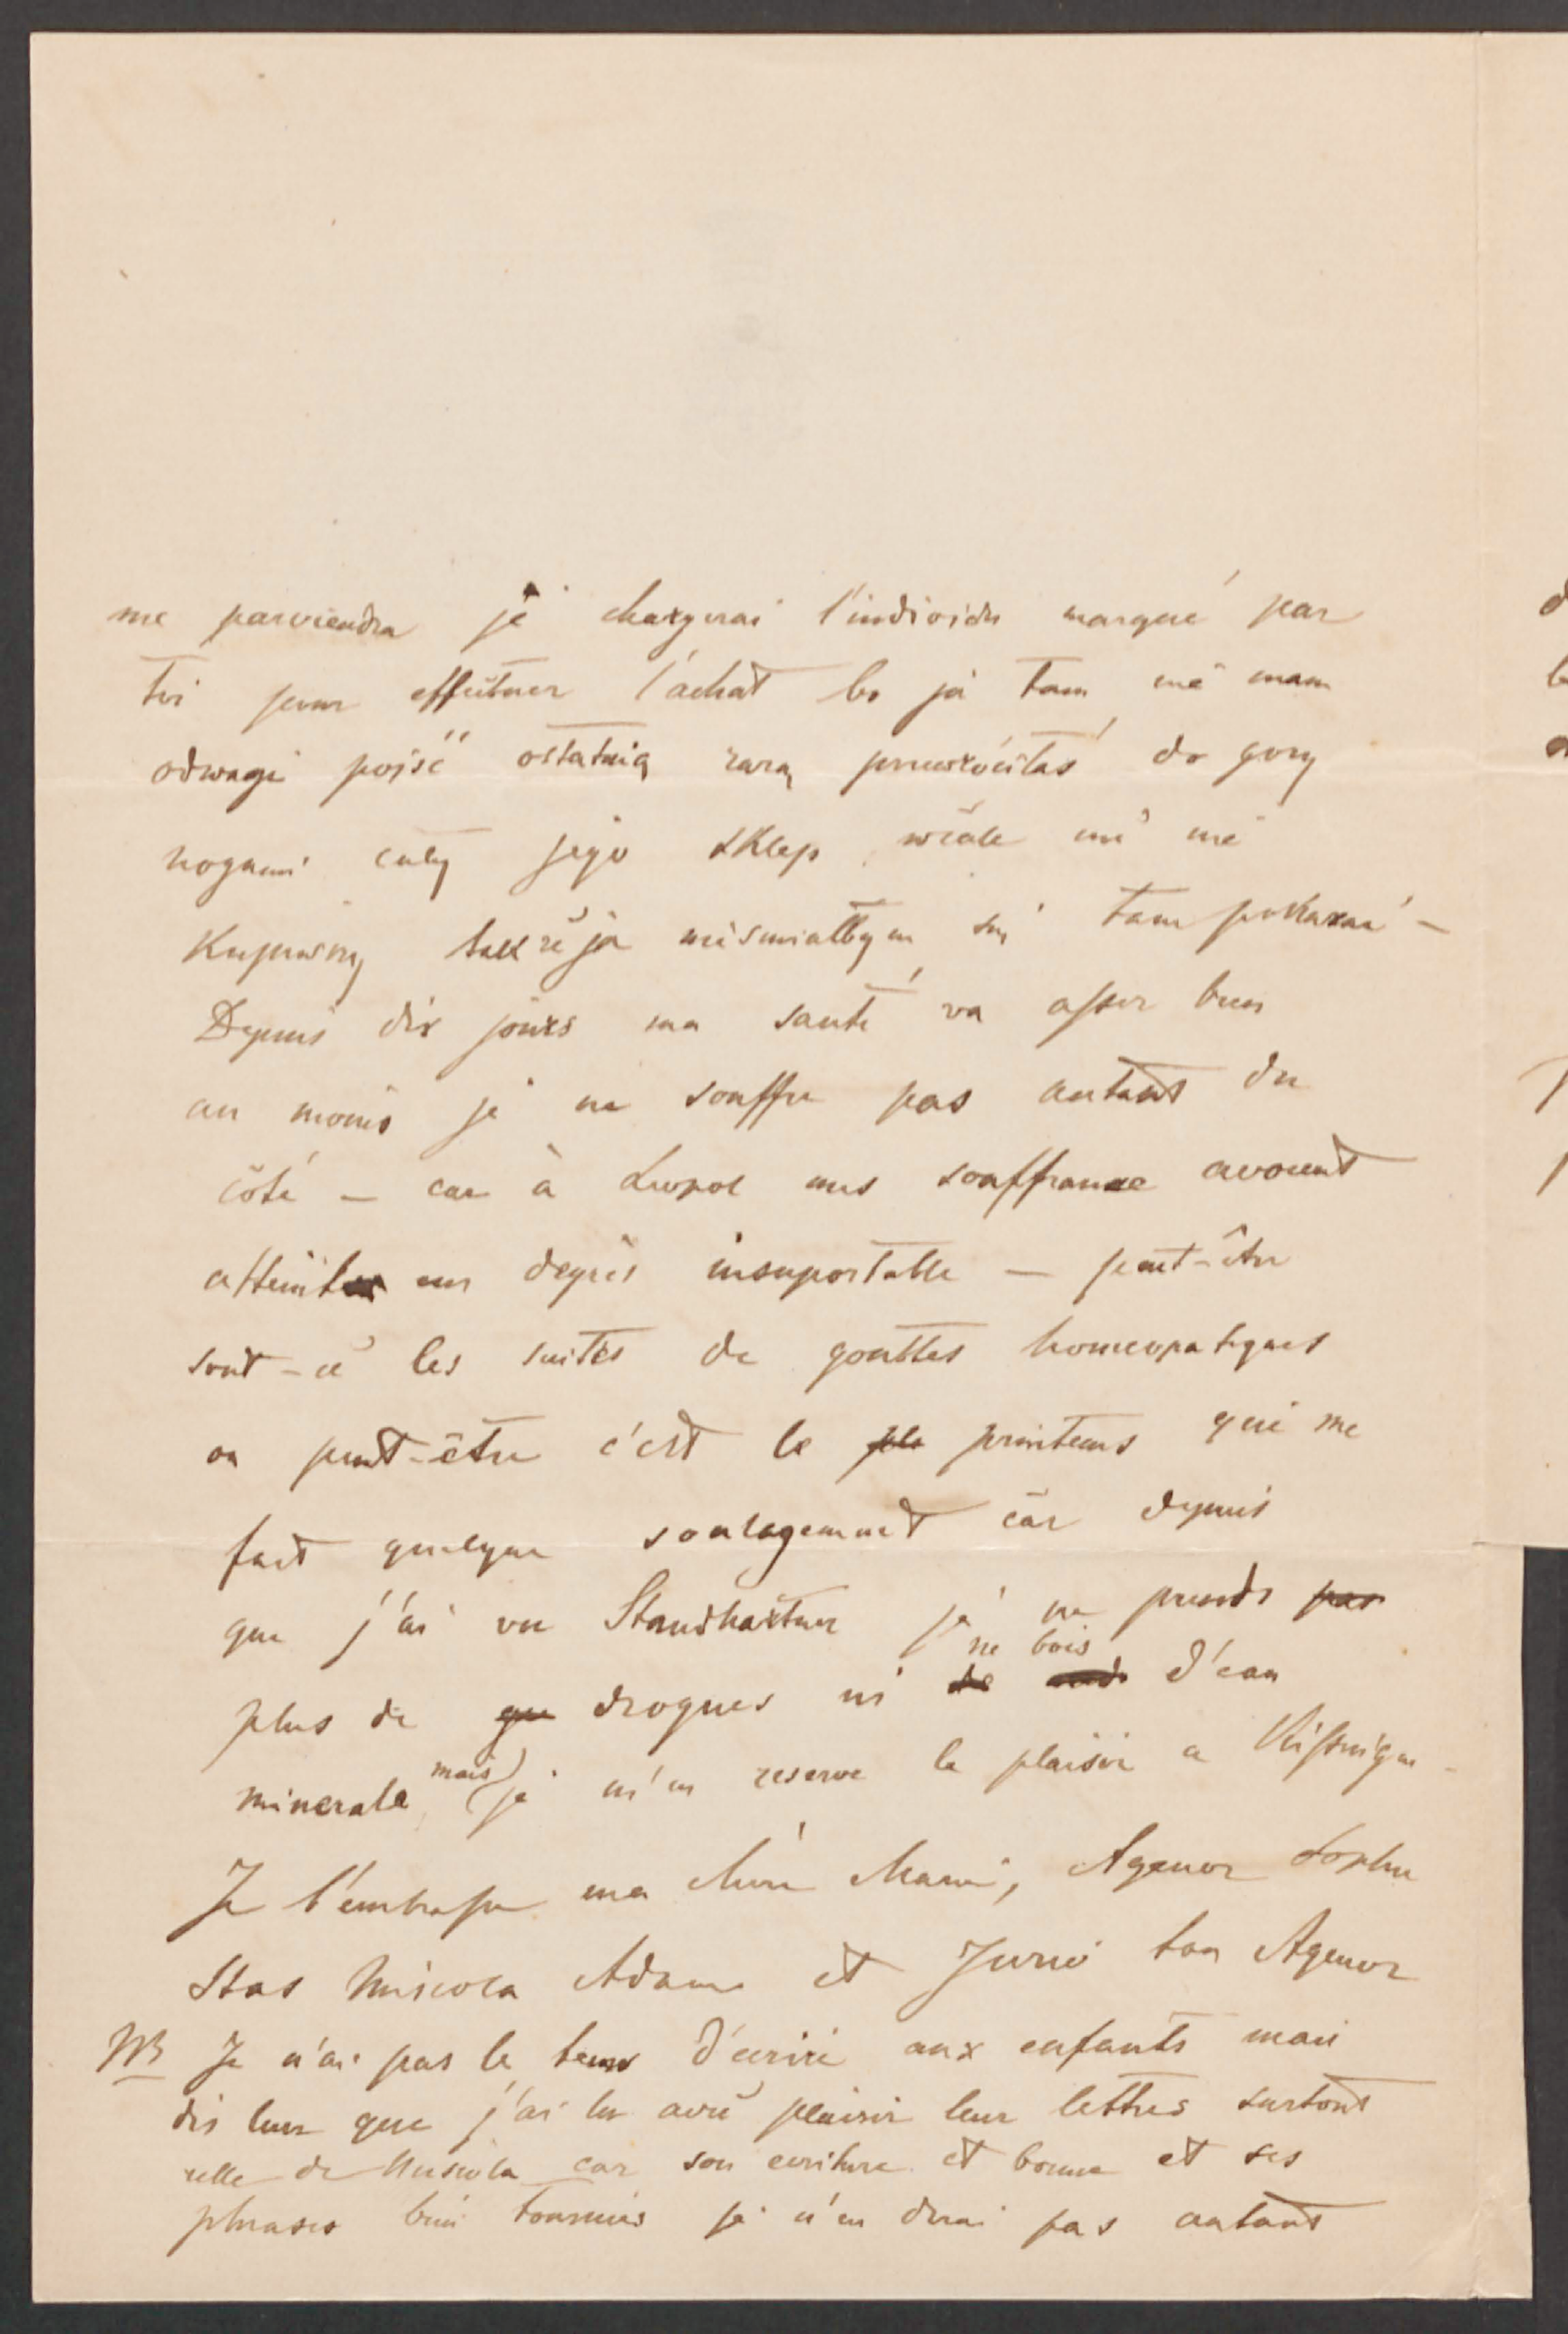 me parviendra je chargerai l'individu marqué par
toi pour effectuer l'achat bo ja tam nie mam
odwagi pojść ostatnią razą przewróciłaś do gory
nogami cały jego sklep wcale nic nie
Kupiwszy takze ja nieśmiałbym się tam pokazać —
Depuis dix jours ma santé va assez bien
au moins je ne souffre pas autant du
côté — car à Leopol mes souffrance avaient
atteint un degrés insuportable — peut-être
sont-ce les suites de gouttes homeopatiques
ou peut-être c'est le ple printems qui me
fait quelque soulagement car depuis
que j'ai vu Standhartner je ne prends pas
plus de que drogues ni de ne bois d'eau
minerale, mais je m'en reserve le plaisir a Kissingue
Je t'embrasse ma chere Marie, Agenor Sophie
Stas Misiola Adam et Jurio ton Agenor
NB Je n'ai pas le tems d'ecrire aux enfants mais
dis leur que j'ai lu avec plaisir leur lettres surtout
celle de Misiola car son ecriture et bonne et ses
phrases bien tournies je n'en dirai pas autant